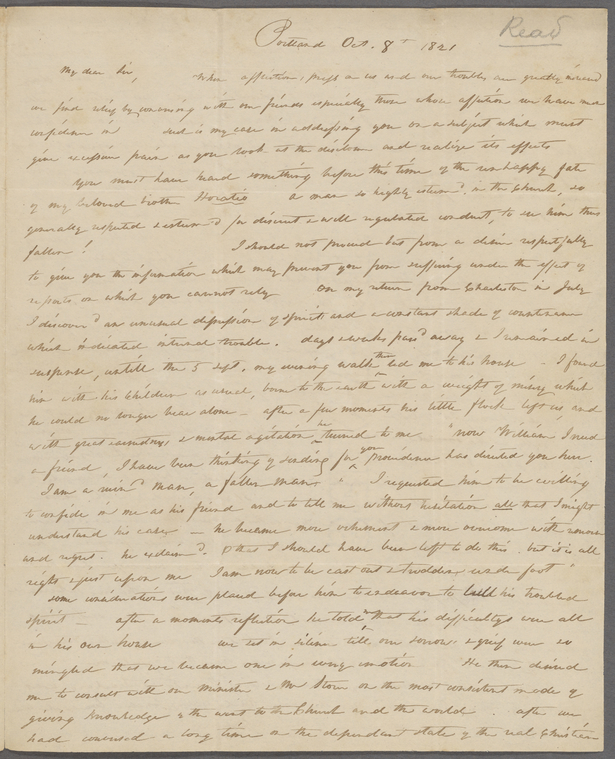 Read
Portland Oct. 8th 1821
My dear Sir, When afflictions press on us and our troubles are greatly increased
we find relief by conversing with our friends especially those whose affection we have most
confidence in such is my case in addressing you on a subject which must
give excessive pain as you look at the disclosure and realize its effects
You must have heard something before this time of the unhappy fate
of my beloved brother Horatio a man so highly esteem'd in the Church, so
generally respected & esteem'd for discreet & well regulated conduct, to see him thus
fallen! I should not proceed but from a desire respectfully
to give you the information which may prevent you from suffering under the effect of
reports on which you cannot rely On my return from Charleston in July
I discover'd an unusual depression of spirits and a constant shade of countenance
which indicated internal trouble. days & weeks pass'd away & I remained in
suspense, untill the 5 Sept. my evening walk then led me to his house - I found
him with his Children as usual, borne to the earth with a weight of misery which
he could no longer bear alone - after a few moments his little flock left us, and
with great and mental agitation he turned to me "now William, I need
a friend, I have been thinking of sending for you providence has directed you here.
I am a ruin'd man, a fallen man" I requested him to be willing
to confide in me as his friend and to tell me without hesitation all that I might
understand his case - he became more vehement & more overcome with remorse
and regret. he exclaim'd. O that I should have been left to do this. but it is all
right & just upon me I am now to be cast out & trodden under foot"
some considerations were placed before him to endeavor to lull his troubled
spirit - after a moments reflection he told that his difficultys were all
in his own house we sat in silence till our sorrows & grief were so
mingled that we became one in every emotion He then desired
me to consult with our Minister & Mr Storer on the most consistent mode of
giving knowledge of the event to the Church and the world. after we
had conversed a long time on the dependant state of the real Christian